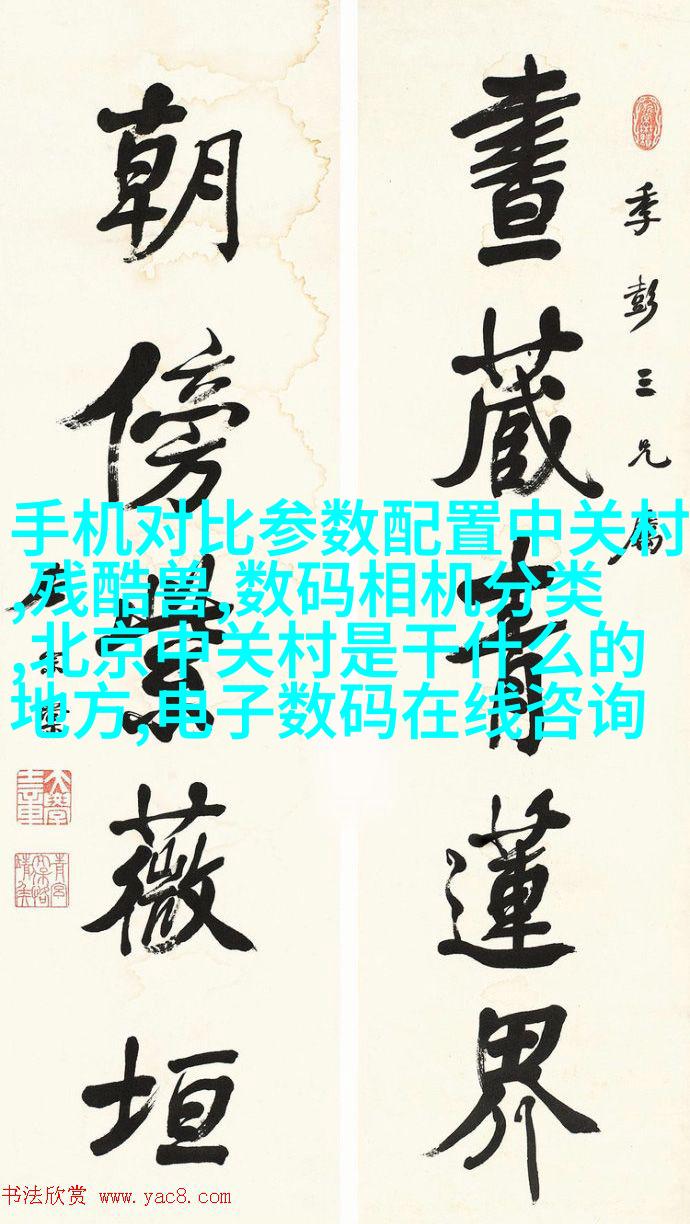 書藏青蓮界
季彭三兄屬
朝傍紫薇垣
手机对比参数配置中关村
,残酷兽,数码相机分类
,北京中关村是干什么的
地方,电子数码在线咨询
书法欣赏 www.yac8.com